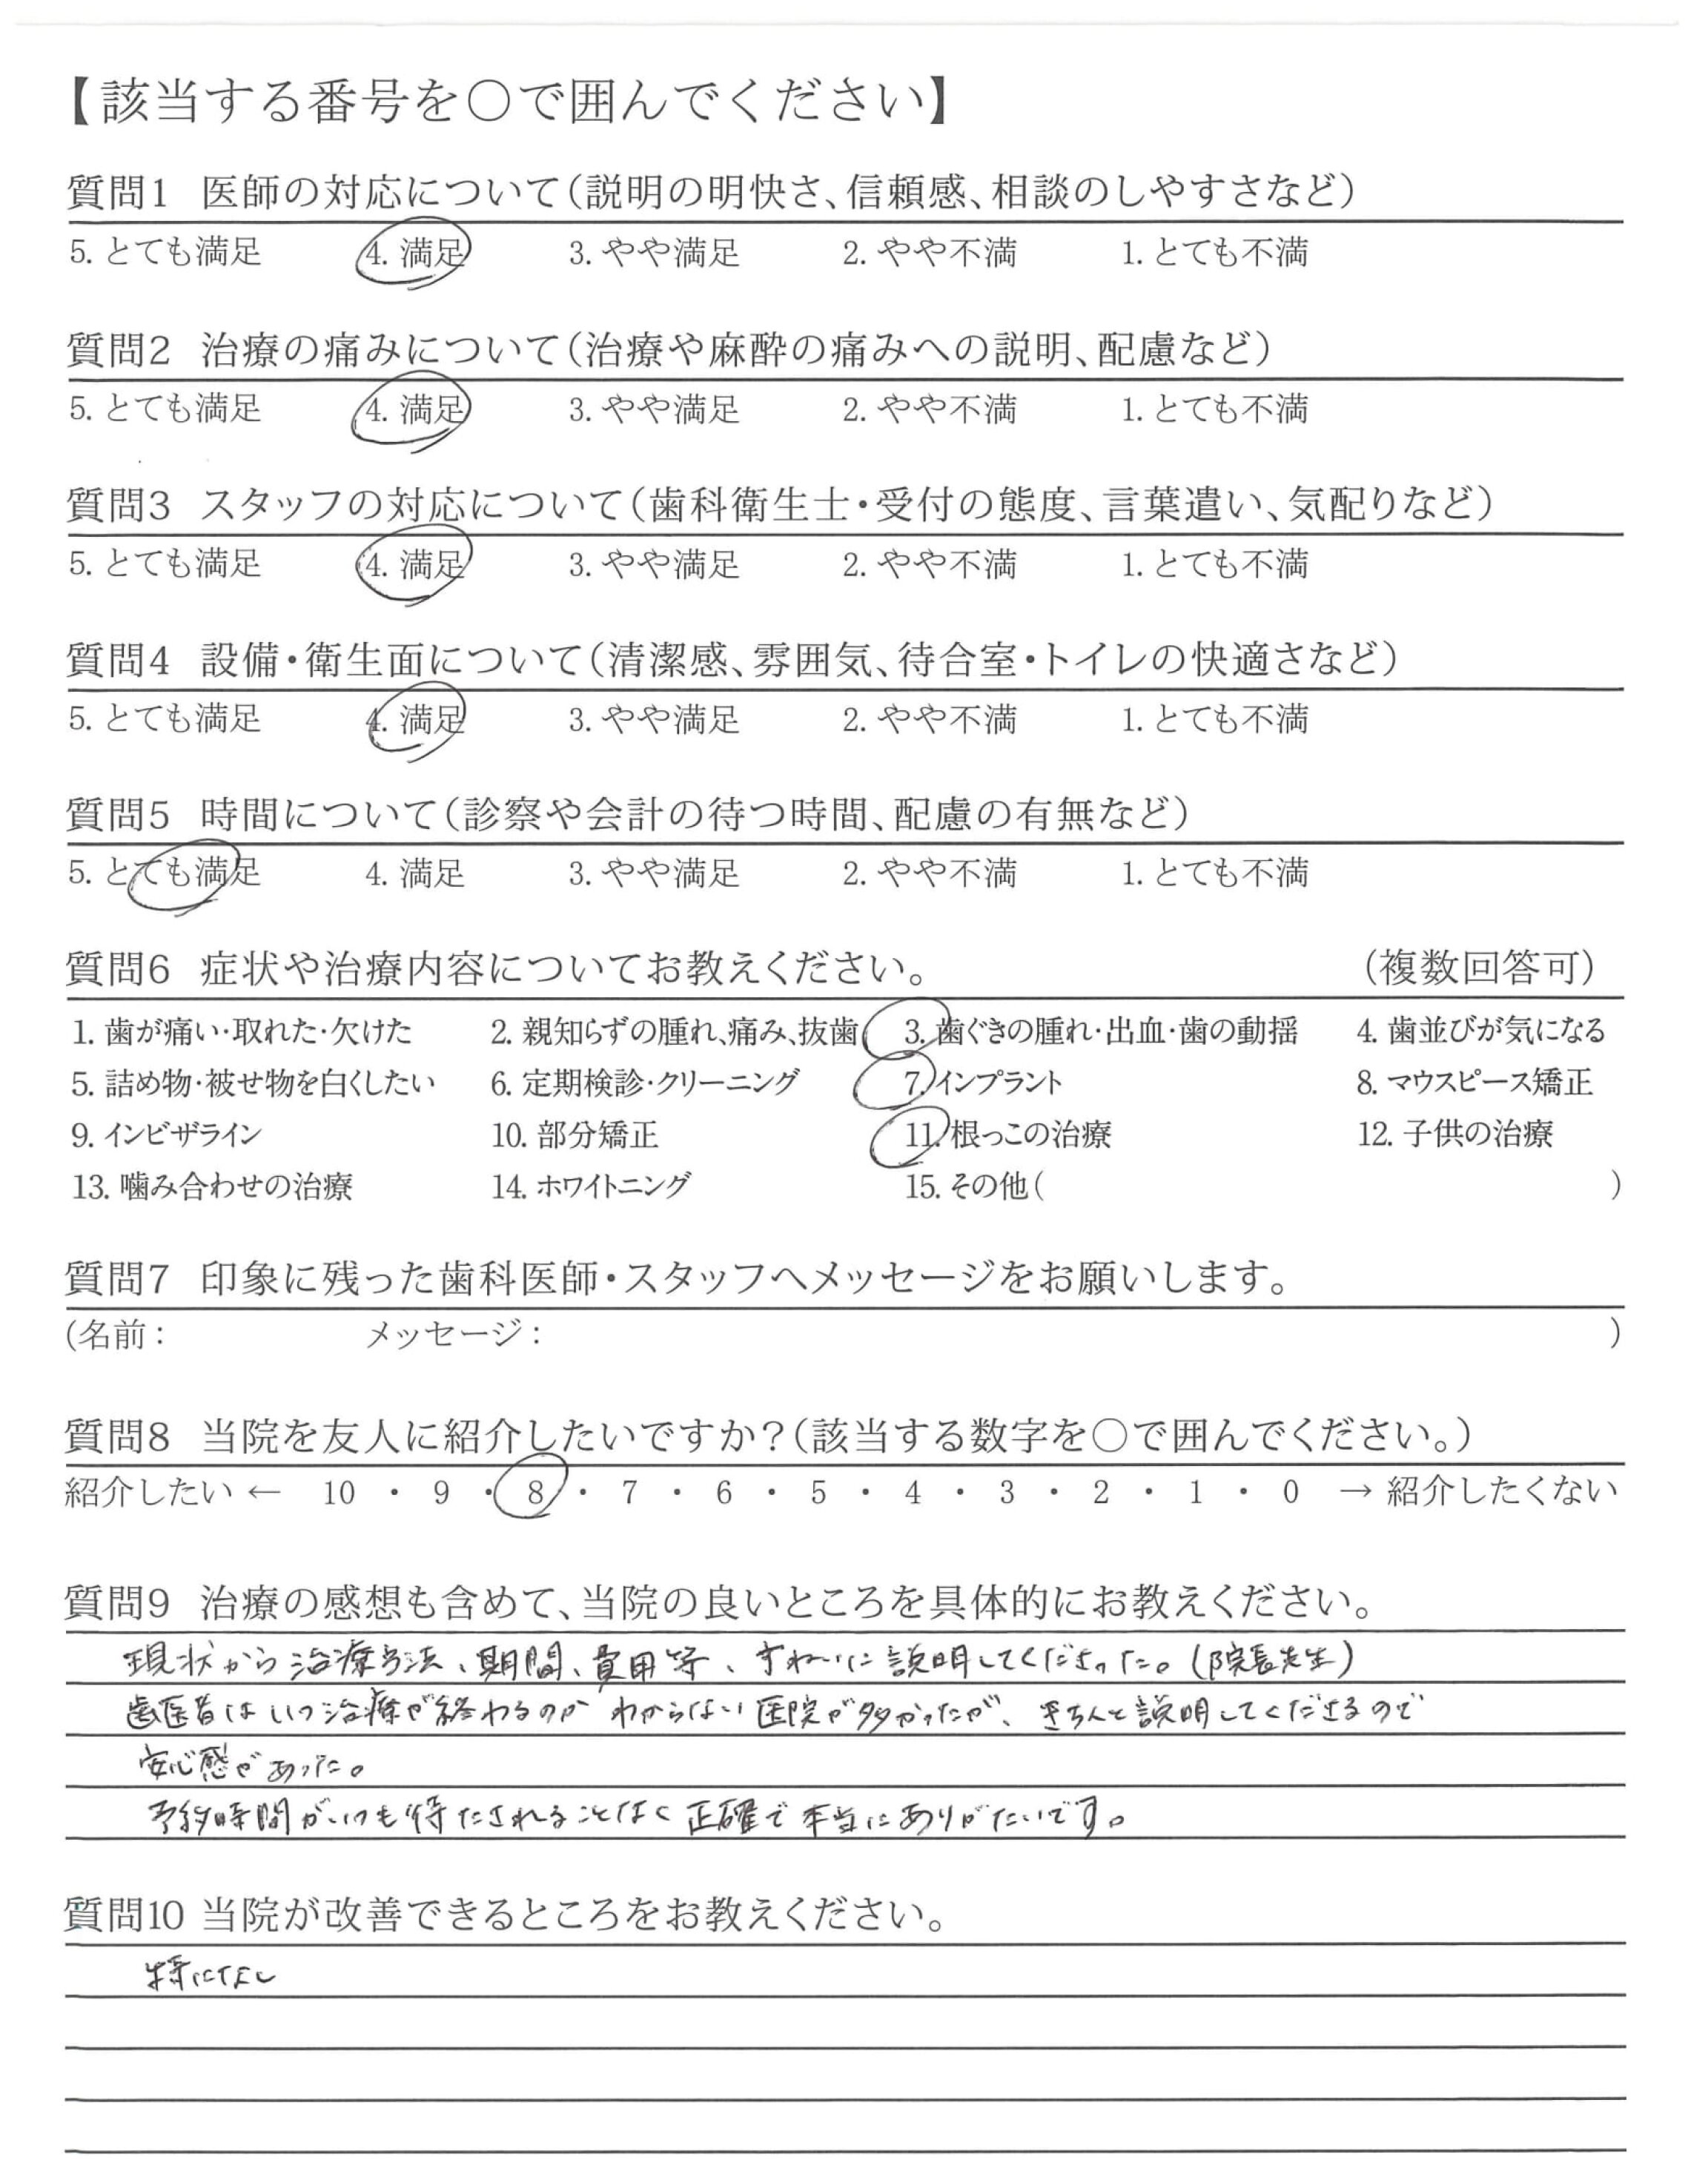 【該当する番号を〇で囲んでください】
質問1 医師の対応について（説明の明快さ、信頼感、相談のしやすさなど）
5. とても満足 4. 満足 3. やや満足 2. やや不満 1. とても不満
質問2 治療の痛みについて（治療や麻酔の痛みへの説明、配慮など）
5. とても満足 4. 満足 3. やや満足 2. やや不満 1. とても不満
質問3 スタッフの対応について（歯科衛生士・受付の態度、言葉遣い、気配りなど）
5. とても満足 4. 満足 3. やや満足 2. やや不満 1. とても不満
質問4 設備・衛生面について（清潔感、雰囲気、待合室・トイレの快適さなど）
5. とても満足 4. 満足 3. やや満足 2. やや不満 1. とても不満
質問5 時間について（診察や会計の待つ時間、配慮の有無など）
5. とても満足 4. 満足 3. やや満足 2. やや不満 1. とても不満
質問6 症状や治療内容についてお教えください。 （複数回答可）
1. 歯が痛い・取れた・欠けた 2. 親知らずの腫れ、痛み、抜歯 3. 歯ぐきの腫れ・出血・歯の動揺 4. 歯並びが気になる
5. 詰め物・被せ物を白くしたい 6. 定期検診・クリーニング 7. インプラント 8. マウスピース矯正
9. インビザライン 10. 部分矯正 11. 根っこの治療 12. 子供の治療
13. 噛み合わせの治療 14. ホワイトニング 15. その他（ ）
質問7 印象に残った歯科医師・スタッフへメッセージをお願いします。
（名前： メッセージ： ）
質問8 当院を友人に紹介したいですか？（該当する数字を〇で囲んでください。）
紹介したい ← 10 ・ 9 ・ 8 ・ 7 ・ 6 ・ 5 ・ 4 ・ 3 ・ 2 ・ 1 ・ 0 → 紹介したくない
質問9 治療の感想も含めて、当院の良いところを具体的にお教えください。
現状から治療方法、期間、費用等、ていねいに説明してくださった。（院長先生）
歯医者はいつ治療が終わるのかわからない医院が多かったが、きちんと説明してくださるので
安心感があった。
予約時間がいつも待たされることなく正確で本当にありがたいです。
質問10 当院が改善できるところをお教えください。
特になし